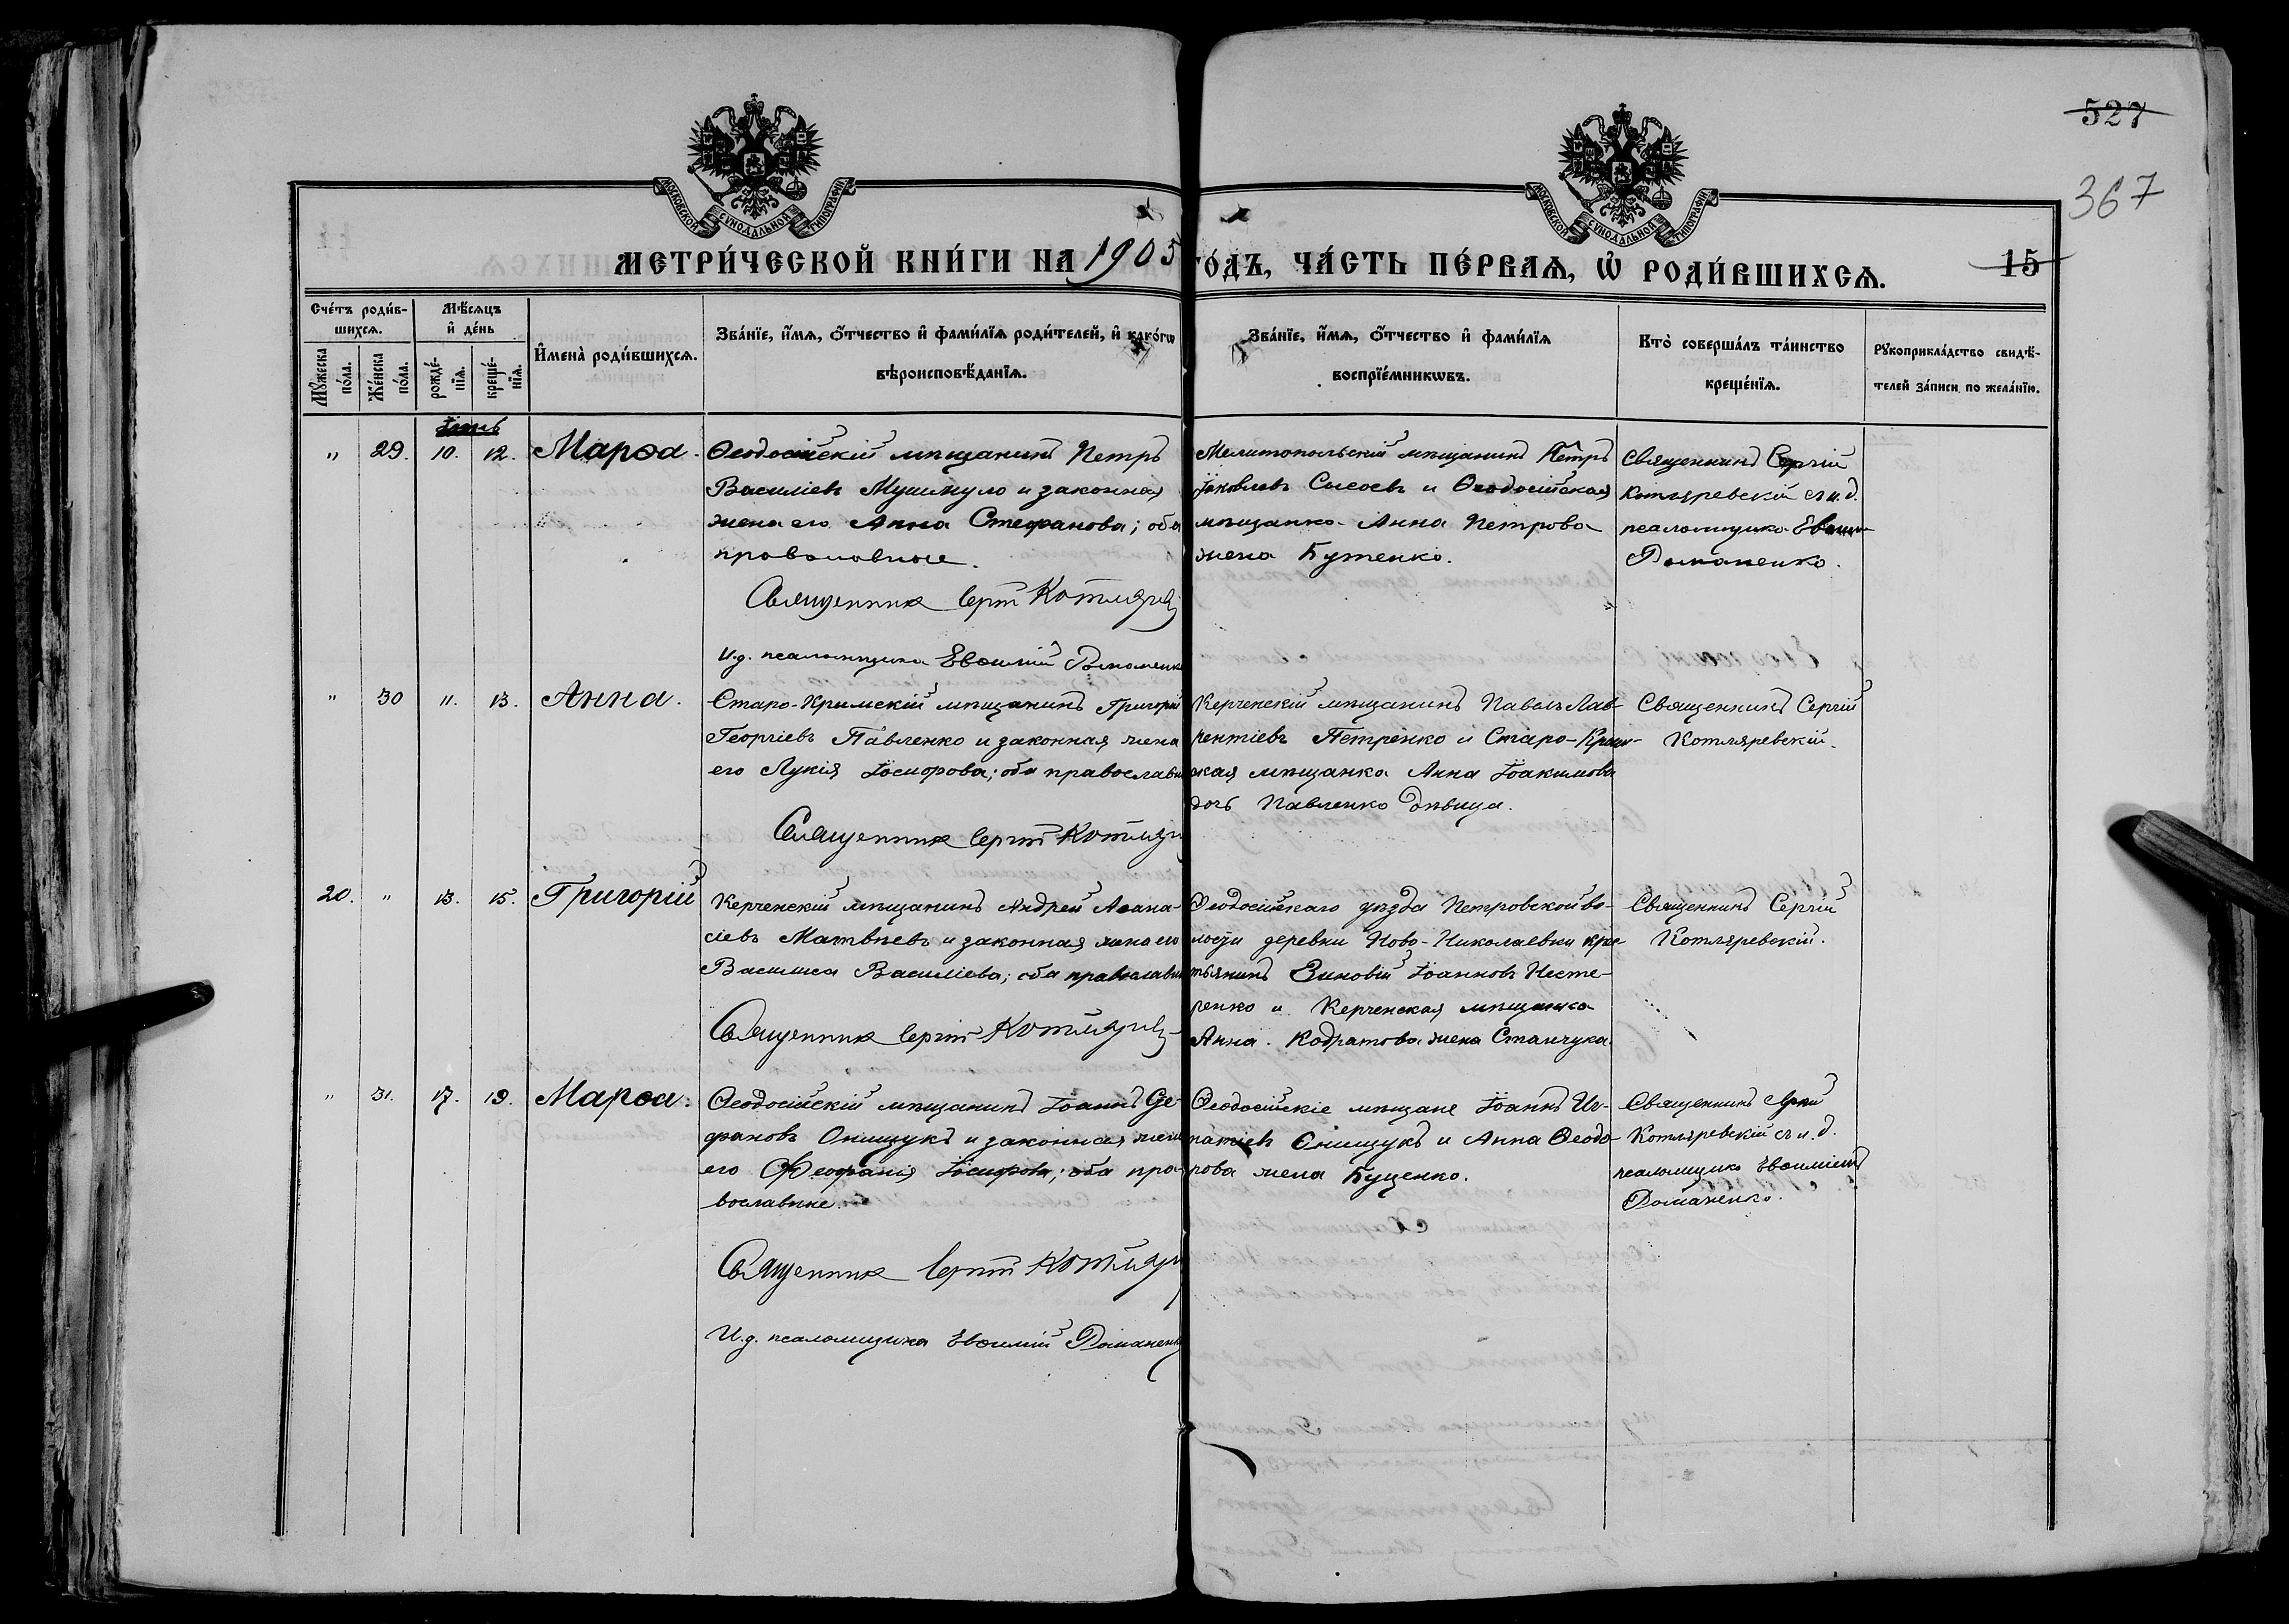 527
367
МОСКОВСКОЙ СѴНОДАЛЬНОЙ ТИПОГРАФІИ
МОСКОВСКОЙ СѴНОДАЛЬНОЙ ТИПОГРАФІИ
МЕТРИ́ЧЕСКОЙ КНИ́ГИ НА 1905 ГО́ДЪ, ЧА́СТЬ ПЕ́РВАѦ, Ѡ҆ РОДИ́ВШИХСѦ.
15
Сче́тъ роди́в-
шихсѧ.
Мꙋ́жеска по́ла.
Же́нска по́ла.
Мѣ́сѧцъ
и҆ де́нь
рожде́-
нїѧ.
креще́-
нїѧ.
И҆мена̀ роди́вшихсѧ.
Зва́нїе, и҆́мѧ, ѻ҆́тчество и҆ фами́лїѧ роди́телей, и҆ како́гѡ
вѣроисповѣ́данїѧ.
Зва́нїе, и҆́мѧ, ѻ҆́тчество и҆ фами́лїѧ
воспрїе́мникѡвъ.
Кто̀ соверша́лъ та́инство
креще́нїѧ.
Рꙋкоприкла́дство свидѣ́-
телей за́писи по жела́нїю.
Іюнь
" 29. 10. 12. Марѳа.
Ѳеодосійскій мѣщанинъ Петръ
Василіевъ Мушмуло и законная
жена его Анна Стефанова; оба
православные.
Священникъ Сергій Котляре
И.д. псаломщика Евѳимій Романенко
Мелитопольскій мѣщанинъ Петръ
Іаковлевъ Сысоевъ и Ѳеодосійская
мѣщанка Анна Петрова
жена Бутенко.
Священникъ Сергій
Котляревскій съ и.д.
псаломщика
Романенко.
" 30 11. 13. Анна.
Старо-Крымскій мѣщанинъ Григорій
Георгіевъ Павленко и законная жена
его Лукія Ісидорова; оба православн
Священникъ Сергій Котляр
Керченскій мѣщанинъ Павелъ Лав-
рентіевъ Петренко и Старо-Крым-
ская мѣщанка Анна Іоакимова
дочь Павленко дѣвица.
Священникъ Сергій
Котляревскій.
20. " 13. 15. Григорій
Керченскій мѣщанинъ Андрей Аѳана-
сіевъ Матвѣевъ и законная жена его
Василиса Василіева; оба православн
Священникъ Сергій Котляре
Ѳеодосійскаго уѣзда Петровской во-
лости деревни Ново-Николаевки крес-
тьянинъ Зиновій Іоанновъ Несте-
ренко и Керченская мѣщанка
Анна Кодратова жена Станчука.
Священникъ Сергій
Котляревскій.
" 31. 17. 19. Марѳа.
Ѳеодосійскій мѣщанинъ Іоаннъ
фановъ Онищукъ и законная жена
его Феофанія; оба пра-
вославные.
Священникъ Сергій Котляр
И.д. псаломщика Евѳимій Романенк
Ѳеодосійскіе мѣщане Іоаннъ Иг-
натіевъ Онищукъ и Анна Ѳеодо-
рова жена Буценко.
Священникъ Сергій
Котляревскій съ и.д.
псаломщика Евѳиміемъ
Романенко.